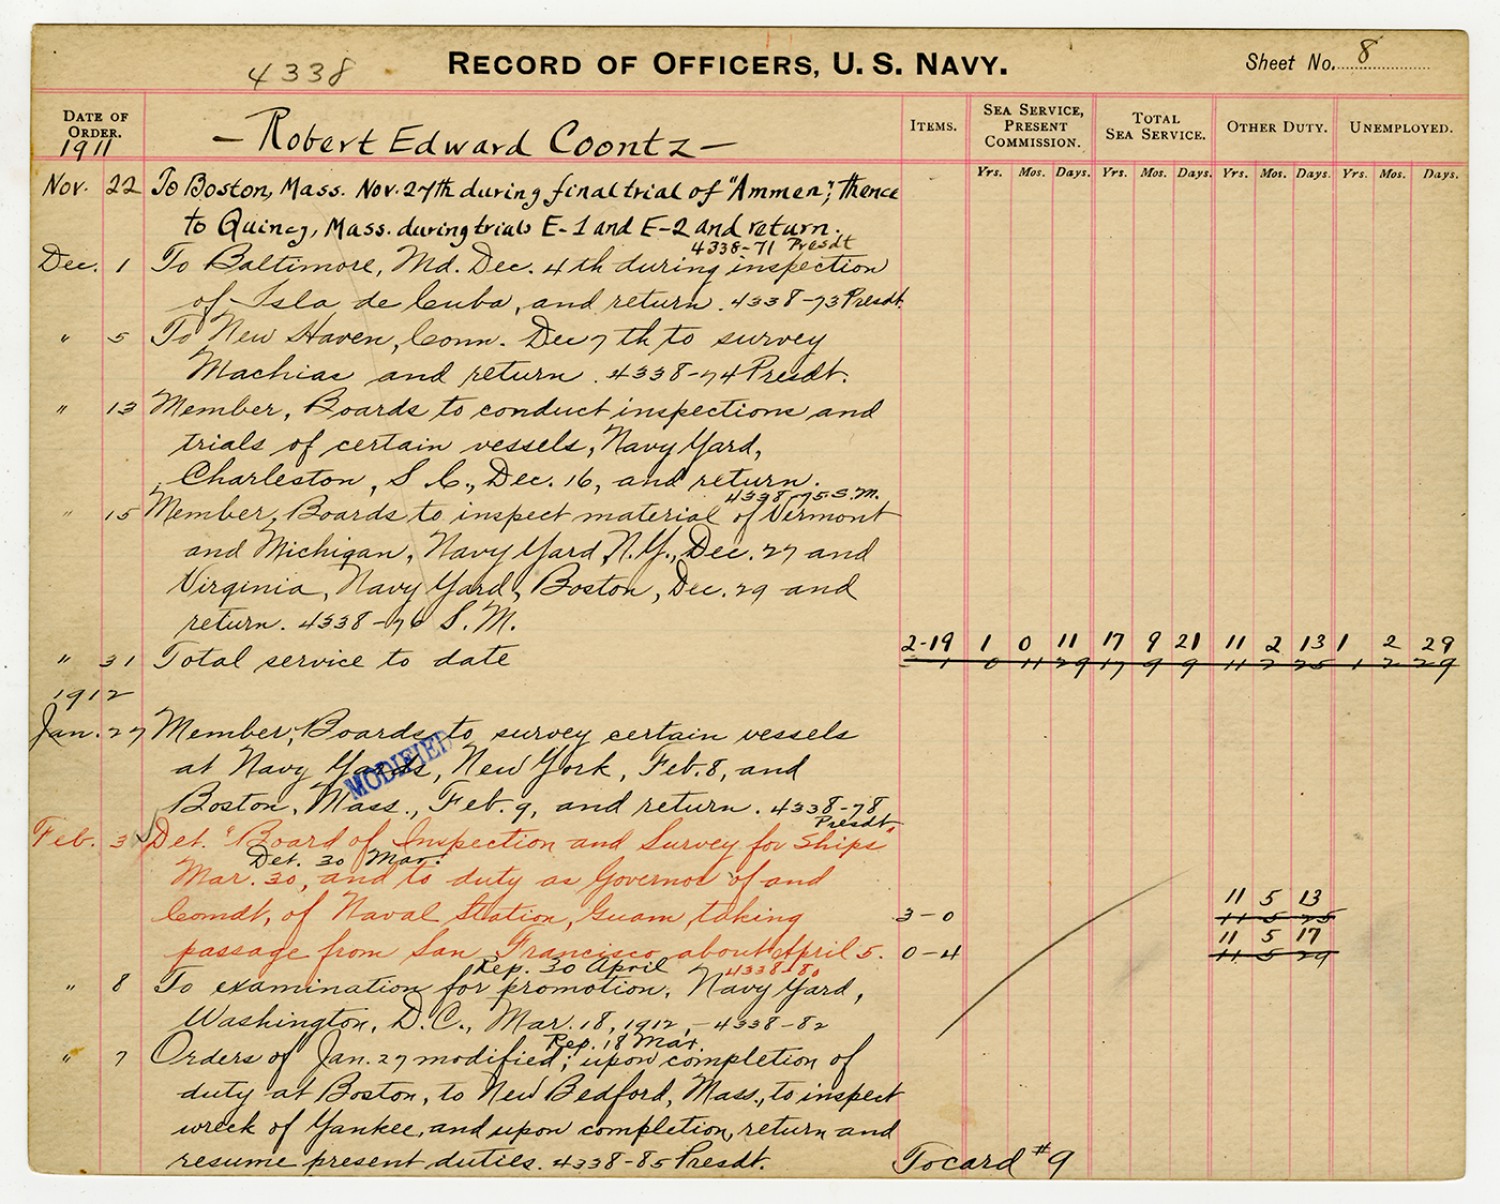 4338
RECORD OF OFFICERS, U. S. NAVY.
Sheet No. 8
DATE OF ORDER.
1911
— Robert Edward Coontz —
ITEMS.
SEA SERVICE, PRESENT COMMISSION.
TOTAL SEA SERVICE.
OTHER DUTY.
UNEMPLOYED.
Yrs. Mos. Days. Yrs. Mos. Days. Yrs. Mos. Days. Yrs. Mos. Days.
Nov. 22 To Boston, Mass. Nov. 27th during final trial of "Ammen"; thence
to Quincy, Mass. during trials E-1 and E-2 and return.
4338-71 Presdt
Dec. 1 To Baltimore, Md. Dec. 4th during inspection
of Isla de Cuba, and return. 4338-73 Presdt.
" 5 To New Haven, Conn. Dec 7th to survey
Machias and return. 4338-74 Presdt.
" 13 Member, Boards to conduct inspections and
trials of certain vessels, Navy Yard,
Charleston, S.C., Dec. 16, and return.
4338-75 S.M.
" 15 Member, Boards to inspect material of Vermont
and Michigan, Navy Yard, N.Y., Dec. 27 and
Virginia, Navy Yard, Boston, Dec. 29 and
return. 4338-76 S.M.
2-19 1 0 11 17 9 21 11 2 13 1 2 29
" 31 Total service to date 1 0 11 29 17 9 9 11 2 25 1 2 29
1912
Jan. 27 Member, Boards to survey certain vessels
at Navy Yards, New York, Feb. 8, and
MODIFIED
Boston, Mass., Feb. 9, and return. 4338-78
Presdt.
Feb. 3 Det. Board of Inspection and Survey for Ships
Det. 30 Mar.
Mar. 30, and to duty as Governor of and
11 5 13
Comdt, of Naval Station, Guam, taking 3-0 11 5 25
11 5 17
passage from San Francisco about April 5. 0-4 11 5 29
Rep. 30 April 4338-80
" 8 To examination for promotion, Navy Yard,
Washington, D.C., Mar. 18, 1912, - 4338-82
Rep. 18 Mar.
" 7 Orders of Jan. 27 modified; upon completion of
duty at Boston, to New Bedford, Mass., to inspect
wreck of Yankee, and upon completion, return and
resume present duties. 4338-85 Presdt.
To card #9